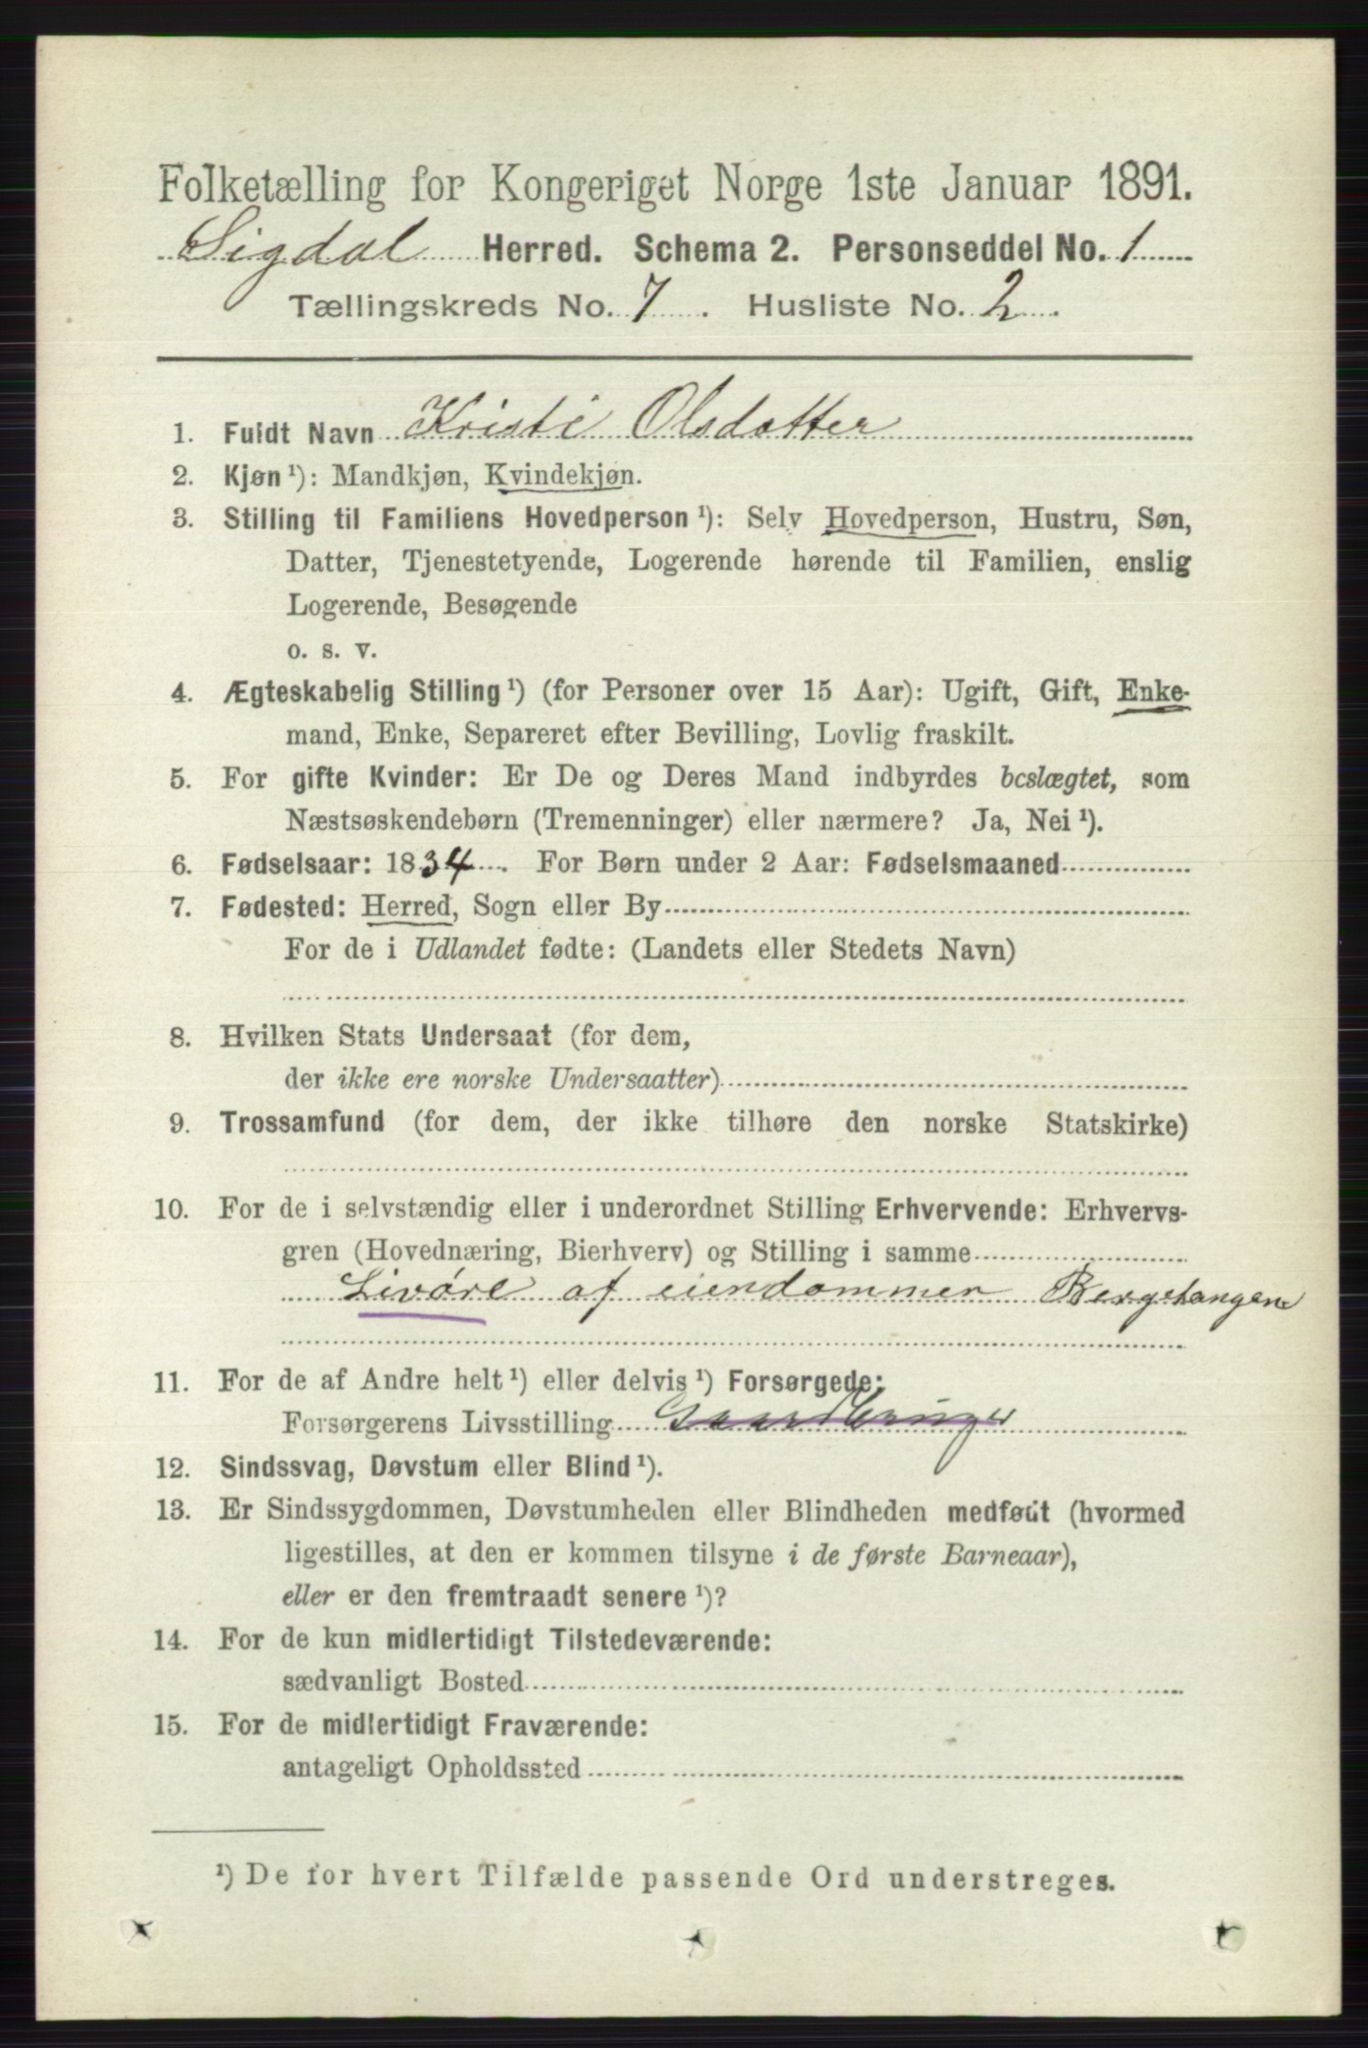 Folketælling for Kongeriget Norge 1ste Januar 1891.
Sigdal Herred. Schema 2. Personseddel No. 1
Tællingskreds No. 7. Husliste No. 2.
1. Fuldt Navn Kristi Olsdatter
2. Kjøn ¹): Mandkjøn, Kvindekjøn.
3. Stilling til Familiens Hovedperson ¹): Selv Hovedperson, Hustru, Søn,
Datter, Tjenestetyende, Logerende hørende til Familien, enslig
Logerende, Besøgende
o. s. v.
4. Ægteskabelig Stilling ¹) (for Personer over 15 Aar): Ugift, Gift, Enke-
mand, Enke, Separeret efter Bevilling, Lovlig fraskilt.
5. For gifte Kvinder: Er De og Deres Mand indbyrdes beslægtet, som
Næstsøskendebørn (Tremenninger) eller nærmere? Ja, Nei ¹).
6. Fødselsaar: 1834. For Børn under 2 Aar: Fødselsmaaned
7. Fødested: Herred, Sogn eller By
For de i Udlandet fødte: (Landets eller Stedets Navn)
8. Hvilken Stats Undersaat (for dem,
der ikke ere norske Undersaatter)
9. Trossamfund (for dem, der ikke tilhøre den norske Statskirke)
10. For de i selvstændig eller i underordnet Stilling Erhvervende: Erhvervs-
gren (Hovednæring, Bierhverv) og Stilling i samme
Livøre af eiendommen Bergehangen
11. For de af Andre helt ¹) eller delvis ¹) Forsørgede:
Forsørgerens Livsstilling Gaardbruger
12. Sindssvag, Døvstum eller Blind ¹).
13. Er Sindssygdommen, Døvstumheden eller Blindheden medfødt (hvormed
ligestilles, at den er kommen tilsyne i de første Barneaar),
eller er den fremtraadt senere ¹)?
14. For de kun midlertidigt Tilstedeværende:
sædvanligt Bosted
15. For de midlertidigt Fraværende:
antageligt Opholdssted
¹) De for hvert Tilfælde passende Ord understreges.